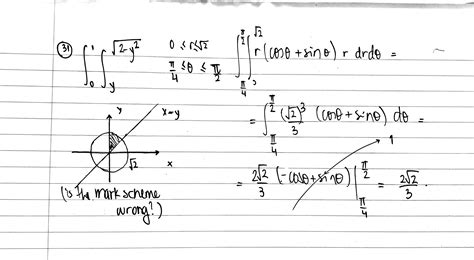 31 ∫₀¹ ∫_y^√(2-y²) 0 ≤ r ≤ √2 ∫_{π/4}^{π/2} ∫₀^{√2} r (cosθ + sinθ) r dr dθ =
π/4 ≤ θ ≤ π/2
= ∫_{π/4}^{π/2} (√2)³/3 (cosθ + sinθ) dθ =
y x=y
x
√2
1
= 2√2/3 (-cosθ + sinθ) |_{π/4}^{π/2} = 2√2/3 .
(is the mark scheme
wrong?)